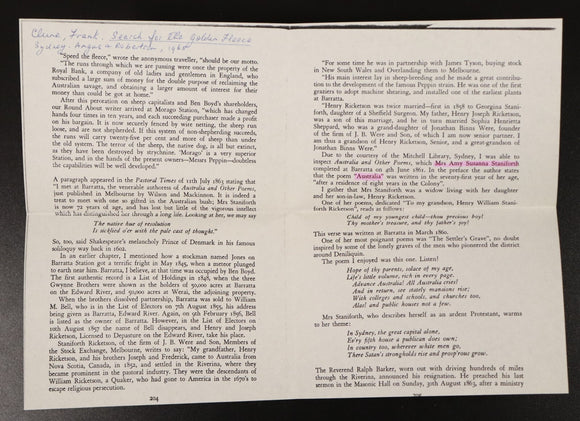 Clune, Frank. Search for the Golden Fleece
Sydney. Angus & Robertson, 1965
"Speed the fleece," wrote the anonymous traveller, "should be our motto.
"The runs through which we are passing were once the property of the
Royal Bank, a company of old ladies and gentlemen in England, who
subscribed a large sum of money for the double purpose of reclaiming the
Australian savage, and obtaining a larger amount of interest for their
money than could be got at home."
After this peroration on sheep capitalists and Ben Boyd's shareholders,
our Round About writer arrived at Morago Station, "which has changed
hands four times in ten years, and each succeeding purchaser made a profit
on his bargain. It is now securely fenced by wire netting, the sheep run
loose, and are not shepherded. If this system of non-shepherding succeeds,
the runs will carry twenty-five per cent and more of sheep than under
the old system. The terror of the sheep, the native dog, is all but extinct,
as they have been destroyed by strychnine. 'Morago' is a very superior
Station, and in the hands of the present owners—Messrs Peppin—doubtless
the capabilities will be well developed."
A paragraph appeared in the Pastoral Times of 11th July 1863 stating that
"I met at Barratta, the venerable authoress of Australia and Other Poems,
just published in Melbourne by Wilson and Mackinnon. It is indeed a
treat to meet with one so gifted in the Australian bush; Mrs Staniforth
is now 72 years of age, and has lost but little of the vigorous intellect
which has distinguished her through a long life. Looking at her, we may say
The native hue of resolution
Is sicklied o'er with the pale cast of thought."
So, too, said Shakespeare's melancholy Prince of Denmark in his famous
soliloquy way back in 1602.
In an earlier chapter, I mentioned how a stockman named Jones on
Barratta Station got a terrific fright in May 1845, when a meteor plunged
to earth near him. Barratta, I believe, at that time was occupied by Ben Boyd.
The first authentic record is a List of Holdings in 1848, when the three
Gwynne Brothers were shown as the holders of 50,000 acres at Barratta
on the Edward River, and 50,000 acres at Werai, the adjoining property.
When the brothers dissolved partnership, Barratta was sold to William
M. Bell, who is in the List of Electors on 7th August 1855, his address
being given as Barratta, Edward River. Again, on 9th February 1856, Bell
is listed as the owner of Barratta. However, in the List of Electors on
10th August 1857 the name of Bell disappears, and Henry and Joseph
Ricketson, Licensed to Depasture on the Edward River, take his place.
Staniforth Ricketson, of the firm of J. B. Were and Son, Members of
the Stock Exchange, Melbourne, writes to say: "My grandfather, Henry
Ricketson, and his brothers Joseph and Frederick, came to Australia from
Nova Scotia, Canada, in 1852, and settled in the Riverina, where they
became prominent in the pastoral industry. They were the descendants of
William Ricketson, a Quaker, who had gone to America in the 1670's to
escape religious persecution.
204
"For some time he was in partnership with James Tyson, buying stock
in New South Wales and Overlanding them to Melbourne.
"His main interest lay in sheep-breeding and he made a great contribution
to the development of the famous Peppin strain. He was one of the first
graziers to adopt machine shearing, and installed one of the earliest plants
at Barratta.
"Henry Ricketson was twice married—first in 1858 to Georgina Staniforth,
daughter of a Sheffield Surgeon. My father, Henry Joseph Ricketson,
was a son of this marriage, and he in turn married Sophia Henrietta
Sheppard, who was a grand-daughter of Jonathan Binns Were, founder
of the firm of J. B. Were and Son, of which I am now senior partner. I
am thus a grandson of Henry Ricketson, Senior, and a great-grandson of
Jonathan Binns Were."
Due to the courtesy of the Mitchell Library, Sydney, I was able to
inspect Australia and Other Poems, which Mrs Amy Susanna Staniforth
completed at Barratta on 4th June 1861. In the preface the author states
that the poem "Australia" was written in the seventy first year of her age,
"after a residence of eight years in the Colony".
I gather that Mrs Staniforth was a widow living with her daughter
and her son-in-law, Henry Ricketson.
One of her poems, dedicated "To my grandson, Henry William Staniforth
Ricketson", reads as follows:
Child of my youngest child—thou precious boy!
Thy mother's treasure, and thy father's joy!
This verse was written at Barratta in March 1860.
One of her most poignant poems was "The Settler's Grave", no doubt
inspired by some of the lonely graves of the men who pioneered the district
around Deniliquin.
The poem I enjoyed was this one. Listen!
Hope of thy parents, solace of my age,
Life's little volume, rich in every page.
Advance Australia! All Australia cries!
And in return, see stately mansions rise;
With colleges and schools, and churches too,
Alas! and public houses not a few.
Mrs Staniforth, who describes herself as an ardent Protestant, warms
to her theme:
In Sydney, the great capital alone,
Ev'ry fifth house a publican does own;
In country too, wherever white men go,
There Satan's strongholds rise and prosp'rous grow.
The Reverend Ralph Barker, worn out with driving hundreds of miles
through the Riverina, announced his resignation. He preached his last
sermon in the Masonic Hall on Sunday, 30th August 1863, after a ministry